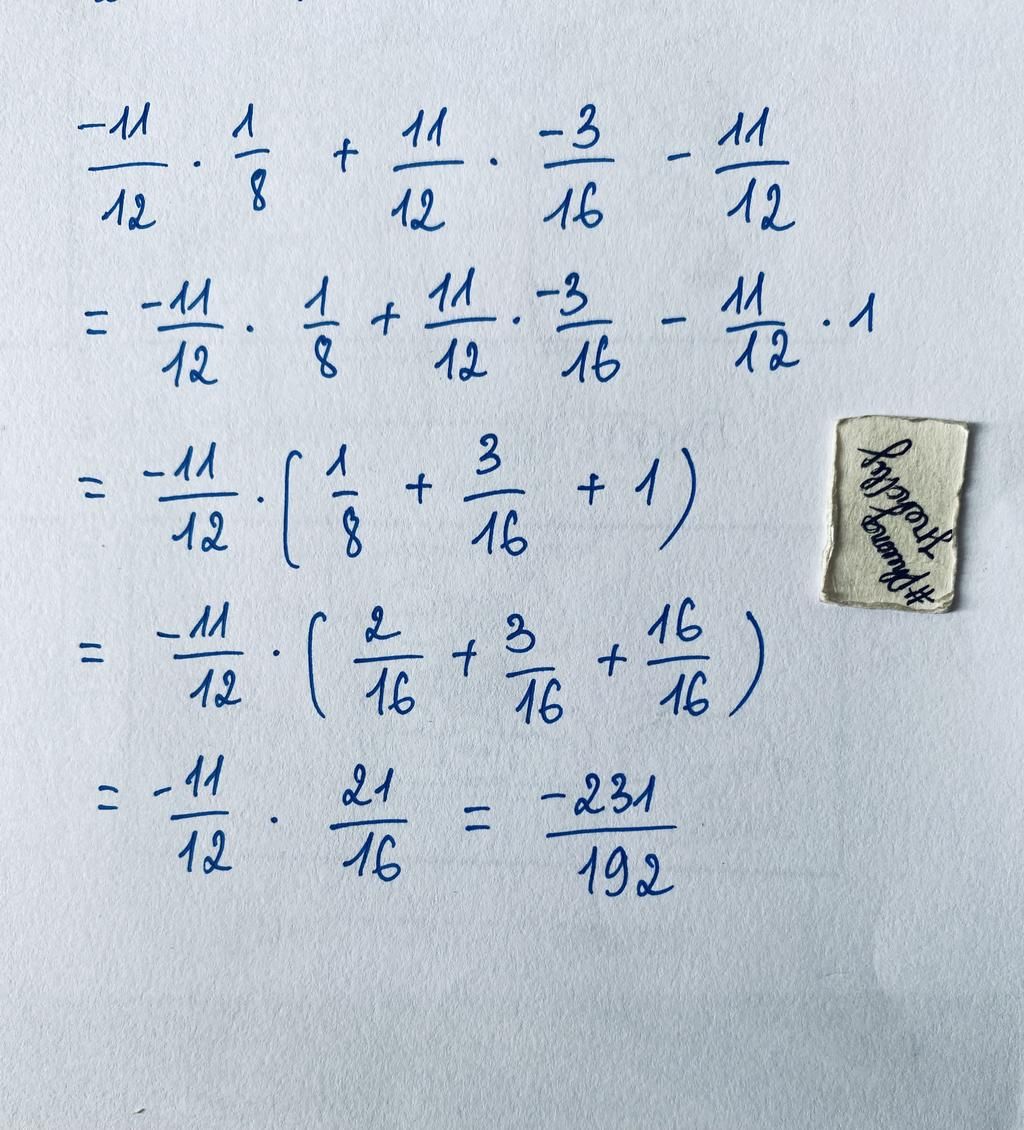 -11/12 . 1/8 + 11/12 . -3/16 - 11/12
= -11/12 . 1/8 + 11/12 . -3/16 - 11/12 . 1
= -11/12 . ( 1/8 + 3/16 + 1 )
= -11/12 . ( 2/16 + 3/16 + 16/16 )
= -11/12 . 21/16 = -231/192
#phuong